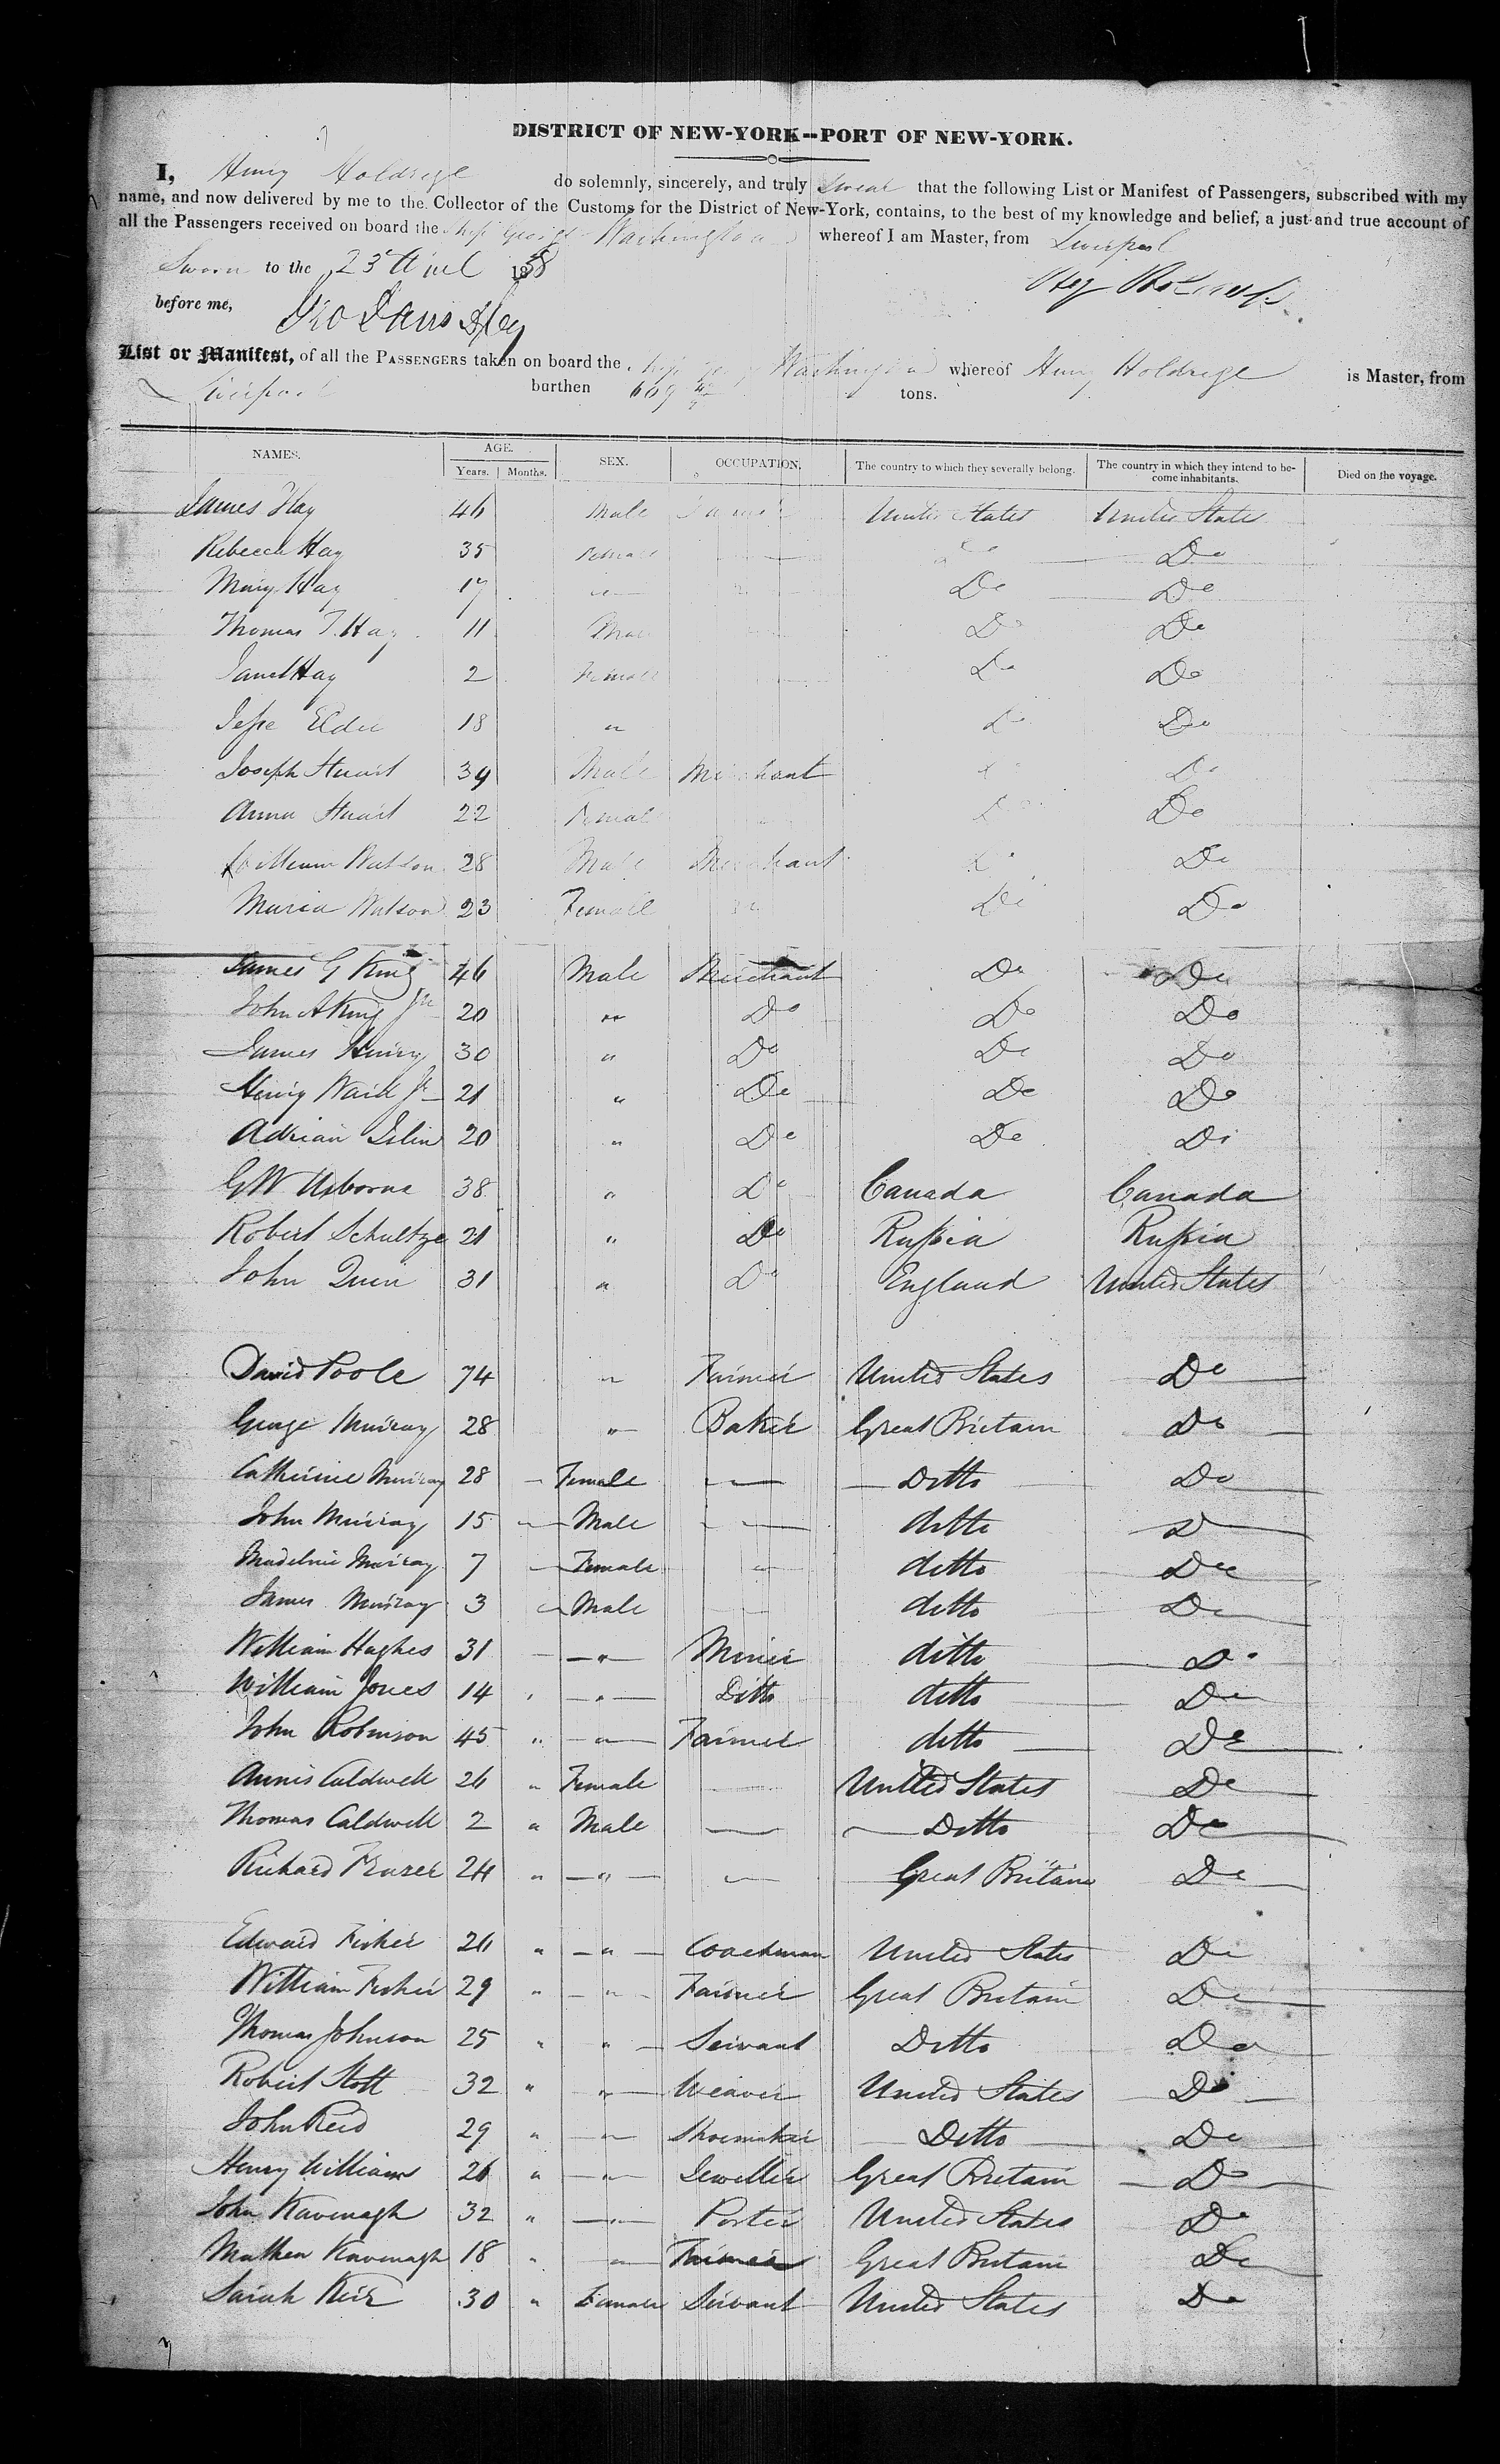 DISTRICT OF NEW-YORK--PORT OF NEW-YORK.
I, Henry Holdrege do solemnly, sincerely, and truly swear that the following List or Manifest of Passengers, subscribed with my
name, and now delivered by me to the Collector of the Customs for the District of New-York, contains, to the best of my knowledge and belief, a just and true account of
all the Passengers received on board the Ship George Washington whereof I am Master, from Liverpool
Sworn to the 23 April 1838
before me,
List or Manifest, of all the PASSENGERS taken on board the Ship George Washington whereof Henry Holdrege is Master, from
Liverpool burthen 609 tons.
NAMES. AGE. SEX. OCCUPATION. The country to which they severally belong. The country in which they intend to be- Died on the voyage.
Years. Months. come inhabitants.
James Hay 46 Male United States United States
Rebecca Hay 35 Female Do Do
Mary Hay 17 " Do Do
Thomas T. Hay 11 Male Do Do
Janet Hay 2 Female Do Do
Jesse Elder 18 " Do Do
Joseph Stuart 39 Male Merchant Do Do
Anna Stuart 22 Female Do Do
William Watson 28 Male Merchant Do Do
Maria Watson 23 Female Do Do
James G King 46 Male Merchant Do Do
John A King Jr 20 " Do Do Do
James Henry 30 " Do Do Do
Henry Ward Jr 21 " Do Do Do
Adrian Islin 20 " Do Do Do
GW Usborne 38 " Do Canada Canada
Robert Schultze 21 " Do Russia Russia
John Quin 31 " Do England United States
David Poole 74 " Farmer United States Do
George Murray 28 " Baker Great Britain Do
Catherine Murray 28 Female — Ditto Do
John Murray 15 Male — ditto Do
Madeline Murray 7 Female — ditto Do
James Murray 3 Male — ditto Do
William Hughes 31 " Miner ditto Do
William Jones 14 " " Ditto ditto Do
John Robinson 45 " " Farmer ditto Do
Annis Caldwell 26 " Female — United States Do
Thomas Caldwell 2 " Male — Ditto Do
Richard Frazer 24 " " — Great Britain Do
Edward Fisher 26 " " Coachman United States Do
William Fisher 29 " " Farmer Great Britain Do
Thomas Johnson 25 " " Servant Ditto Do
Robert Stott 32 " " Weaver United States Do
John Reid 29 " " Shoemaker Ditto Do
Henry Williams 26 " " Jeweller Great Britain Do
John Kavenagh 32 " " Porter United States Do
Mathew Kavenagh 18 " " Farmer Great Britain Do
Sarah Keir 30 " Female Servant United States Do